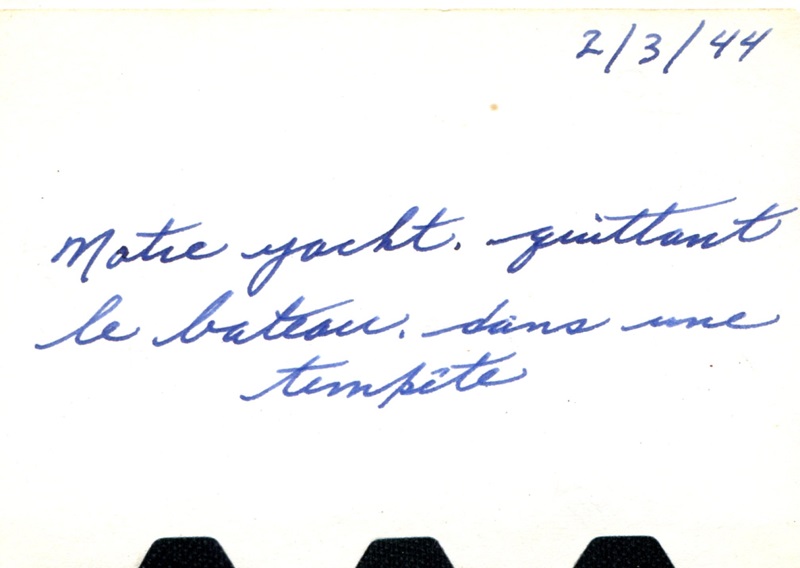 2/3/44
Notre yacht. quittant
le bateau. dans une
tempête